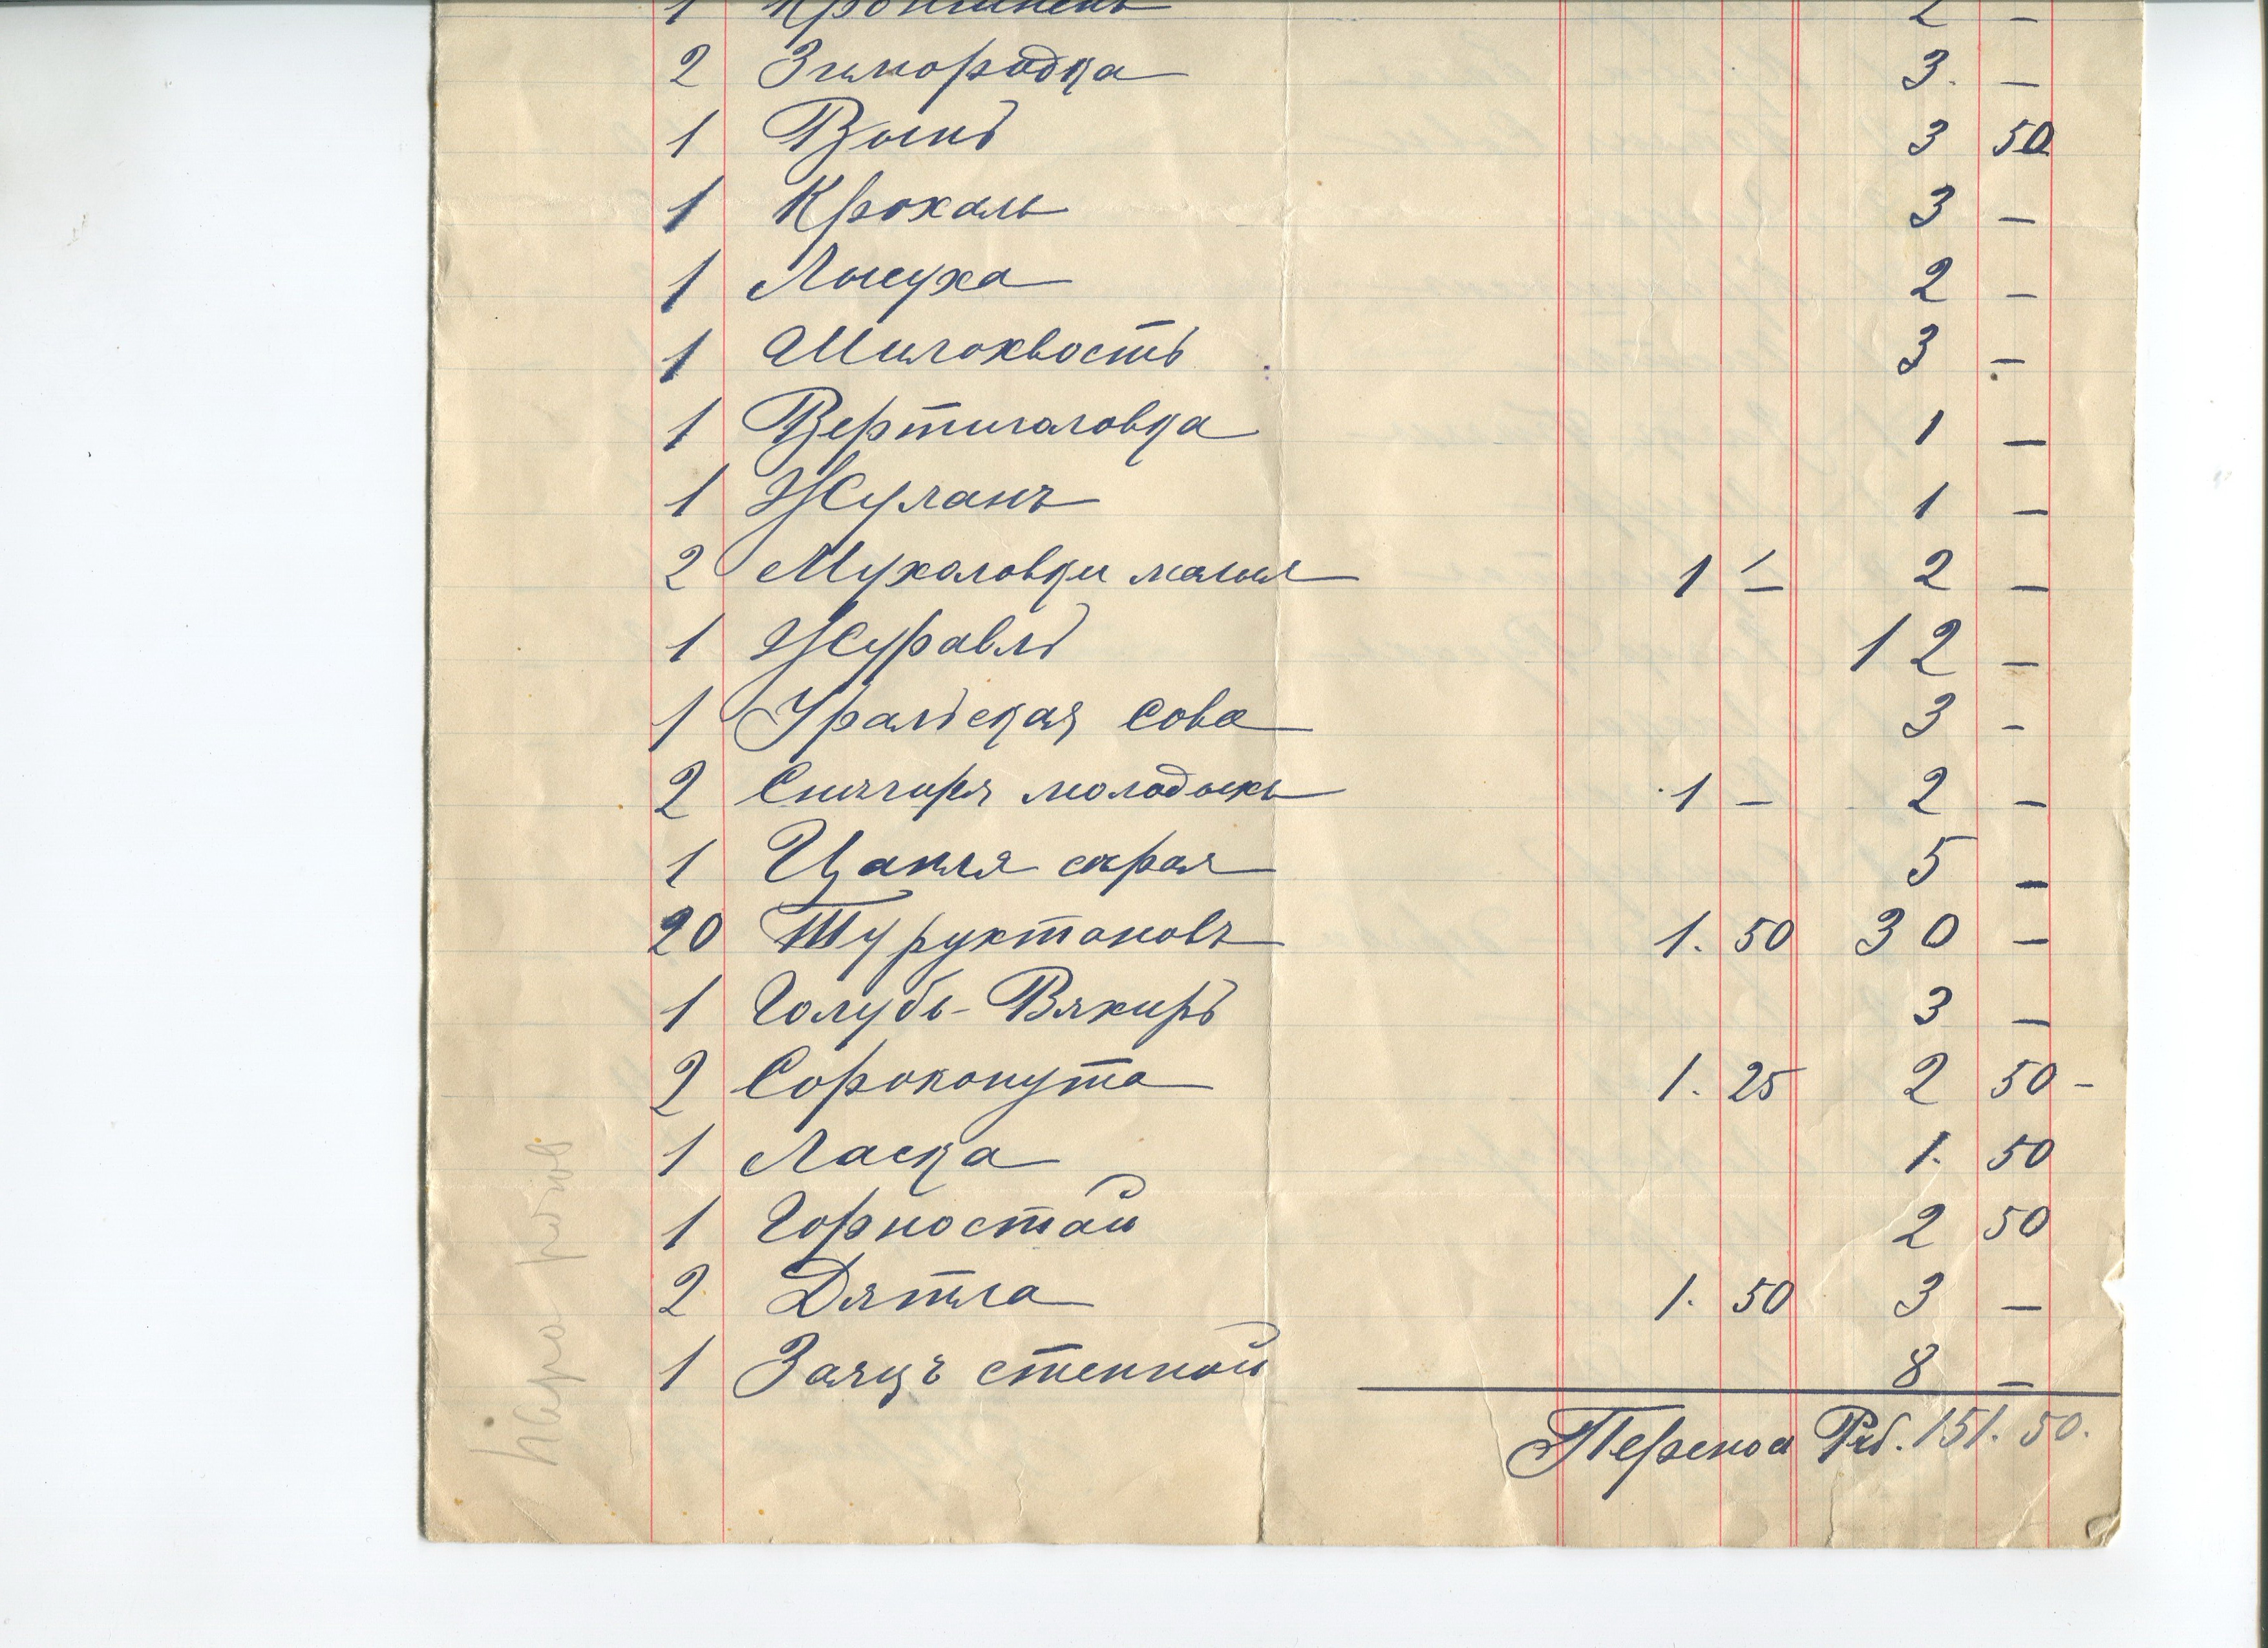 1 Кроншнепъ 2 —
2 Зимородка 3. —
1 Выпь 3 50
1 Крохаль 3 —
1 Лысуха 2 —
1 Шилохвость 3 —
1 Вертиголовка 1 —
1 Жуланъ 1 —
2 Мухоловки малыя 1 — 2 —
1 Журавль 12 —
1 Уральская сова 3 —
2 Снягиря молодыхъ 1 — 2 —
1 Цапля серая 5 —
20 Туруктановъ 1. 50 30 —
1 Голубь-Вякирь 3 —
2 Сорокопута 1. 25 2 50 —
1 Ласка 1. 50
1 Горностай 2 50
2 Дятла 1. 50 3 —
1 Заяцъ степной 8 —
Переноси Руб. 151. 50.